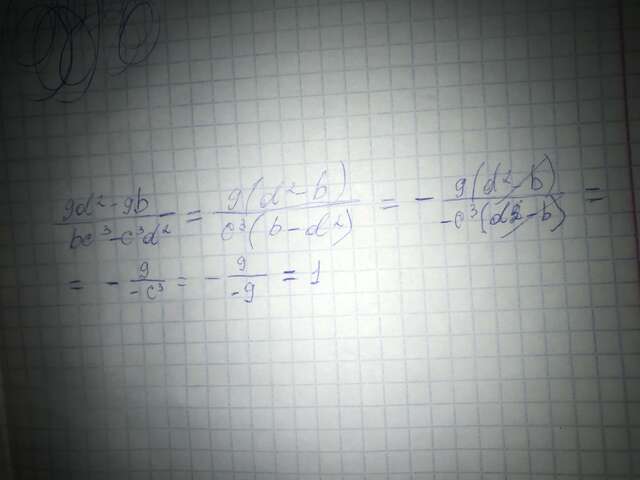 9d² - 9b / bc³ - c³d² = 9(d² - b) / c³(b - d²) = - 9(d² - b) / -c³(d² - b) =
= - 9 / -c³ = - 9 / -9 = 1